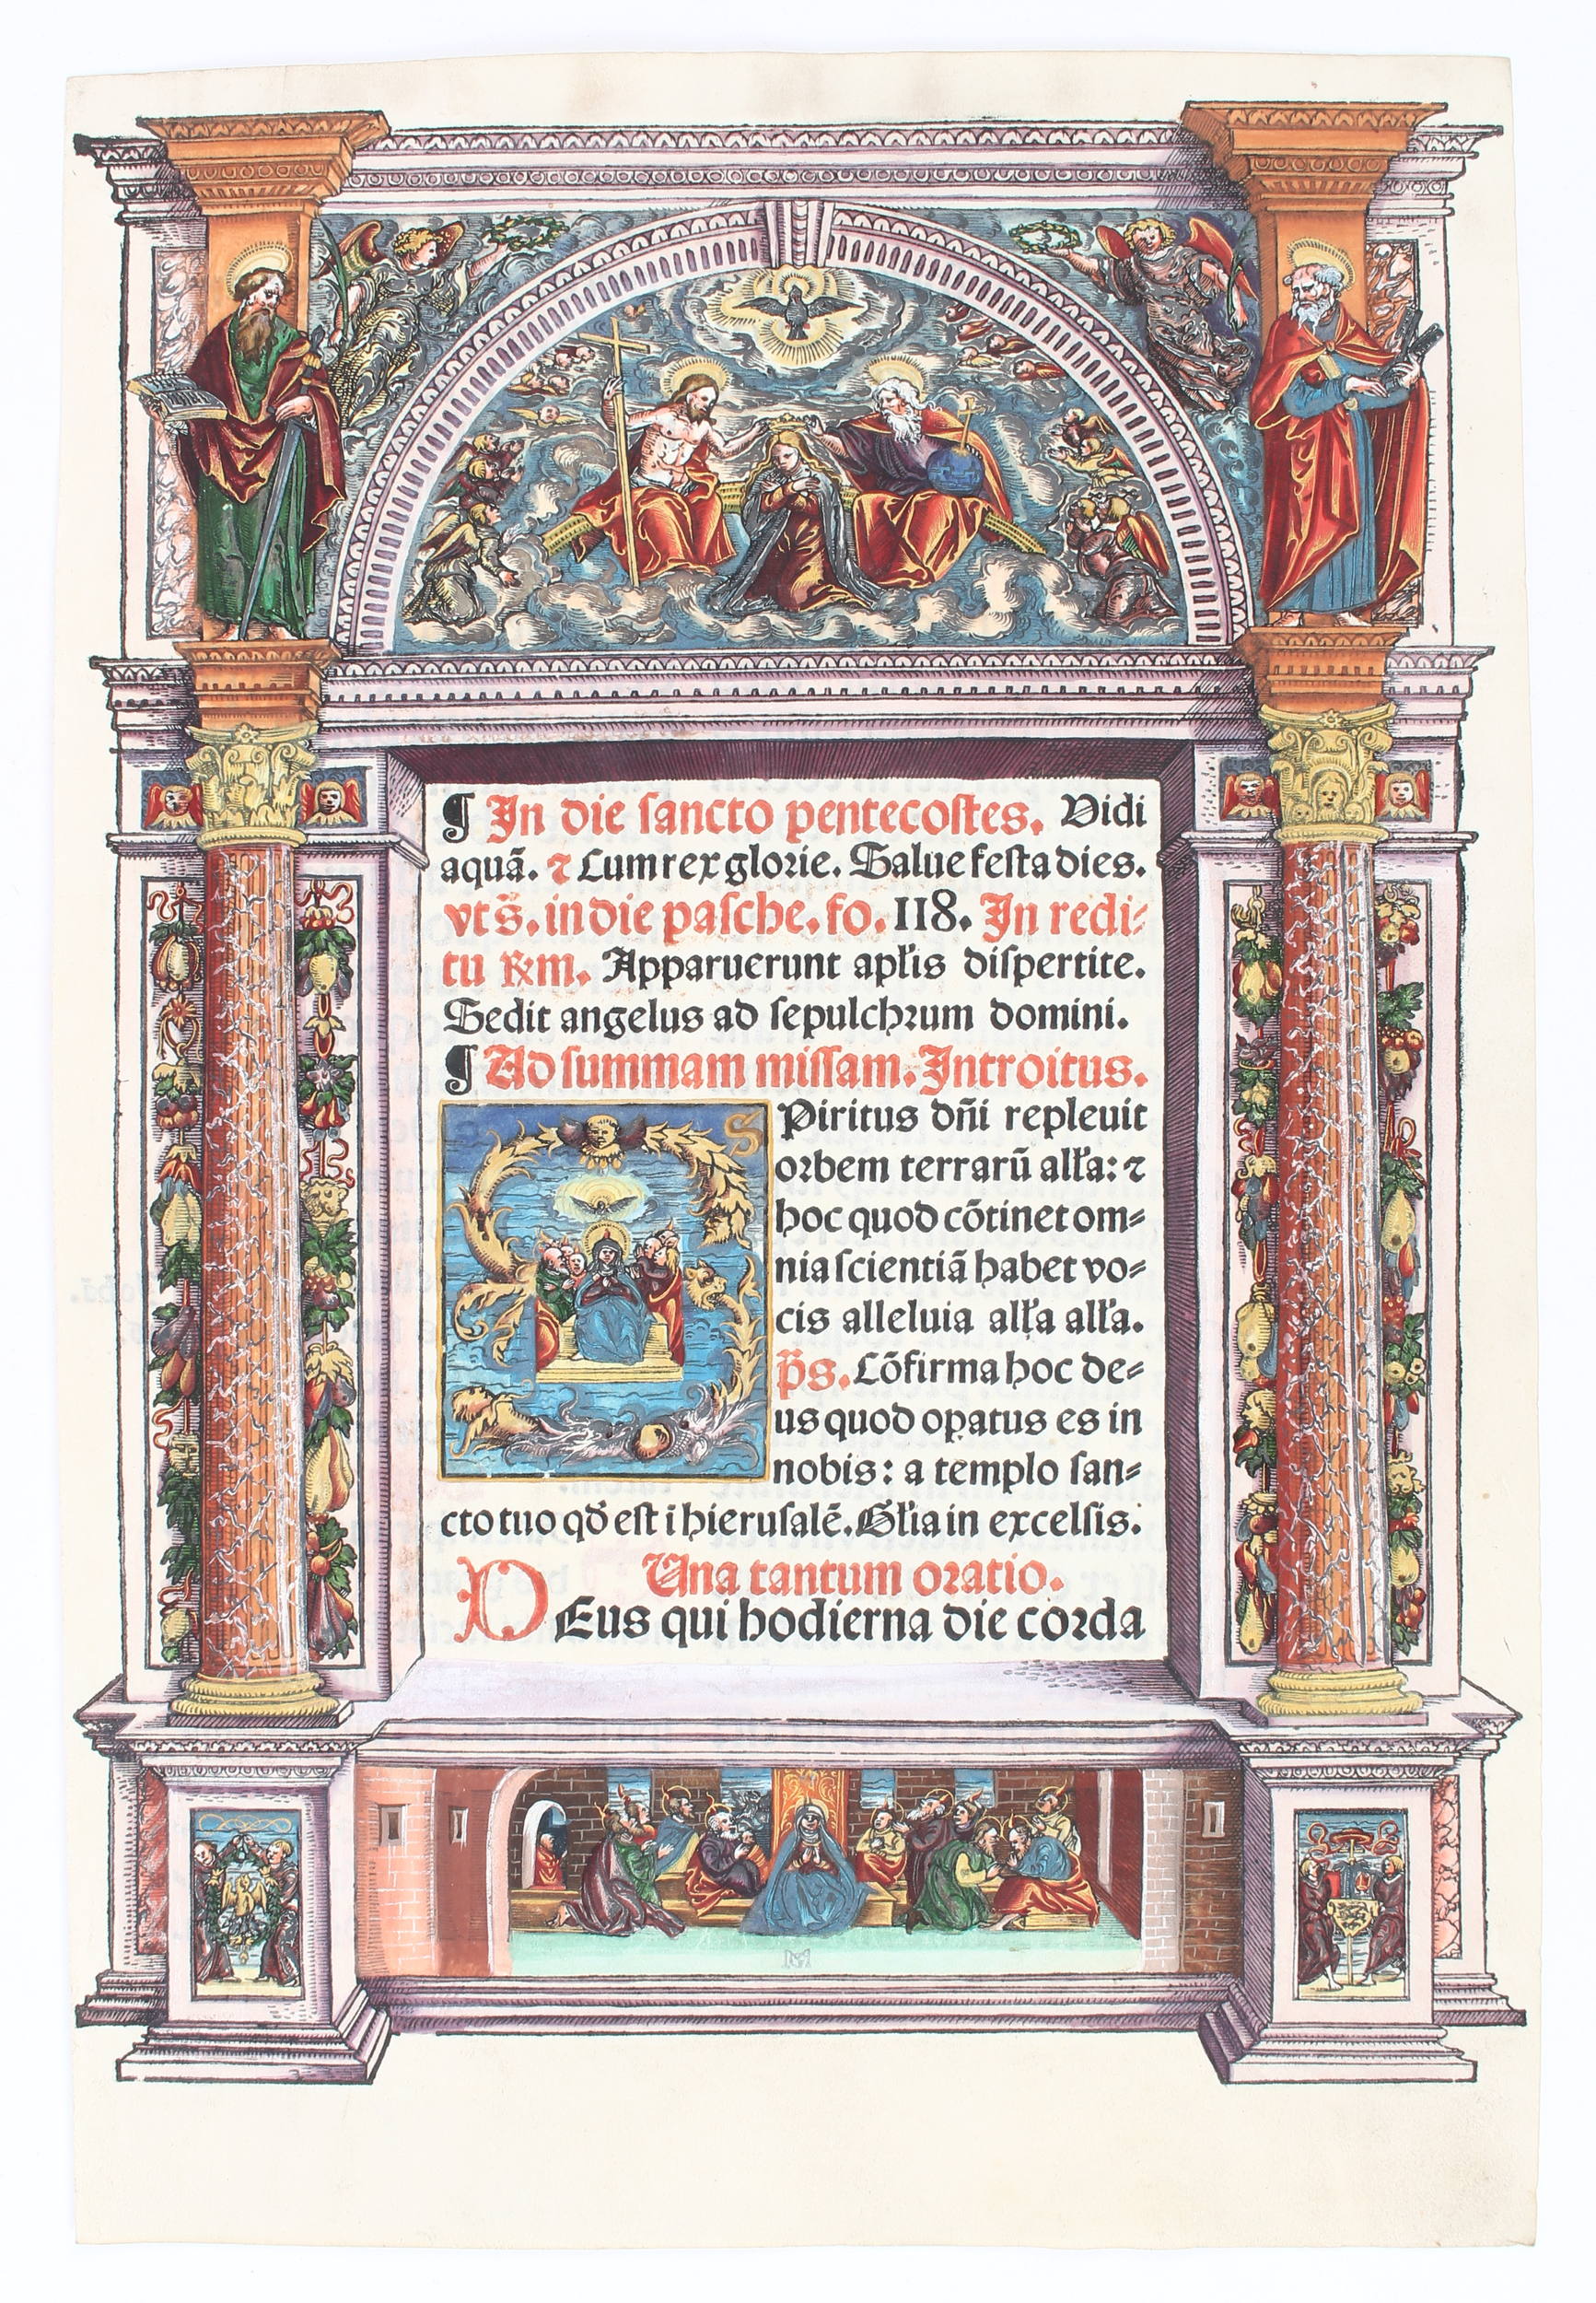 ¶ In die sancto pentecostes. Vidi
aquã. ⁊ Cum rex glorie. Salue festa dies.
vt s̃. in die pasche. fo. 118. In redi⸗
tu ℞m. Apparuerunt apl'is dispertite.
Sedit angelus ad sepulchrum domini.
¶ Ad summam missam. Introitus.
SPiritus dñi repleuit
orbem terrarũ all'a: ⁊
hoc quod cõtinet om⸗
nia scientiã habet vo⸗
cis alleluia all'a all'a.
p̃s. Cõfirma hoc de⸗
us quod oꝑatus es in
nobis: a templo san⸗
cto tuo qđ est i hierusalẽ. Gl'ia in excelsis.
Una tantum oratio.
DEus qui hodierna die corda